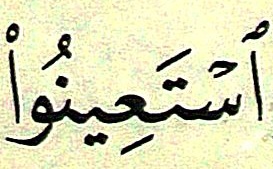 ٱسْتَعِينُوا۟